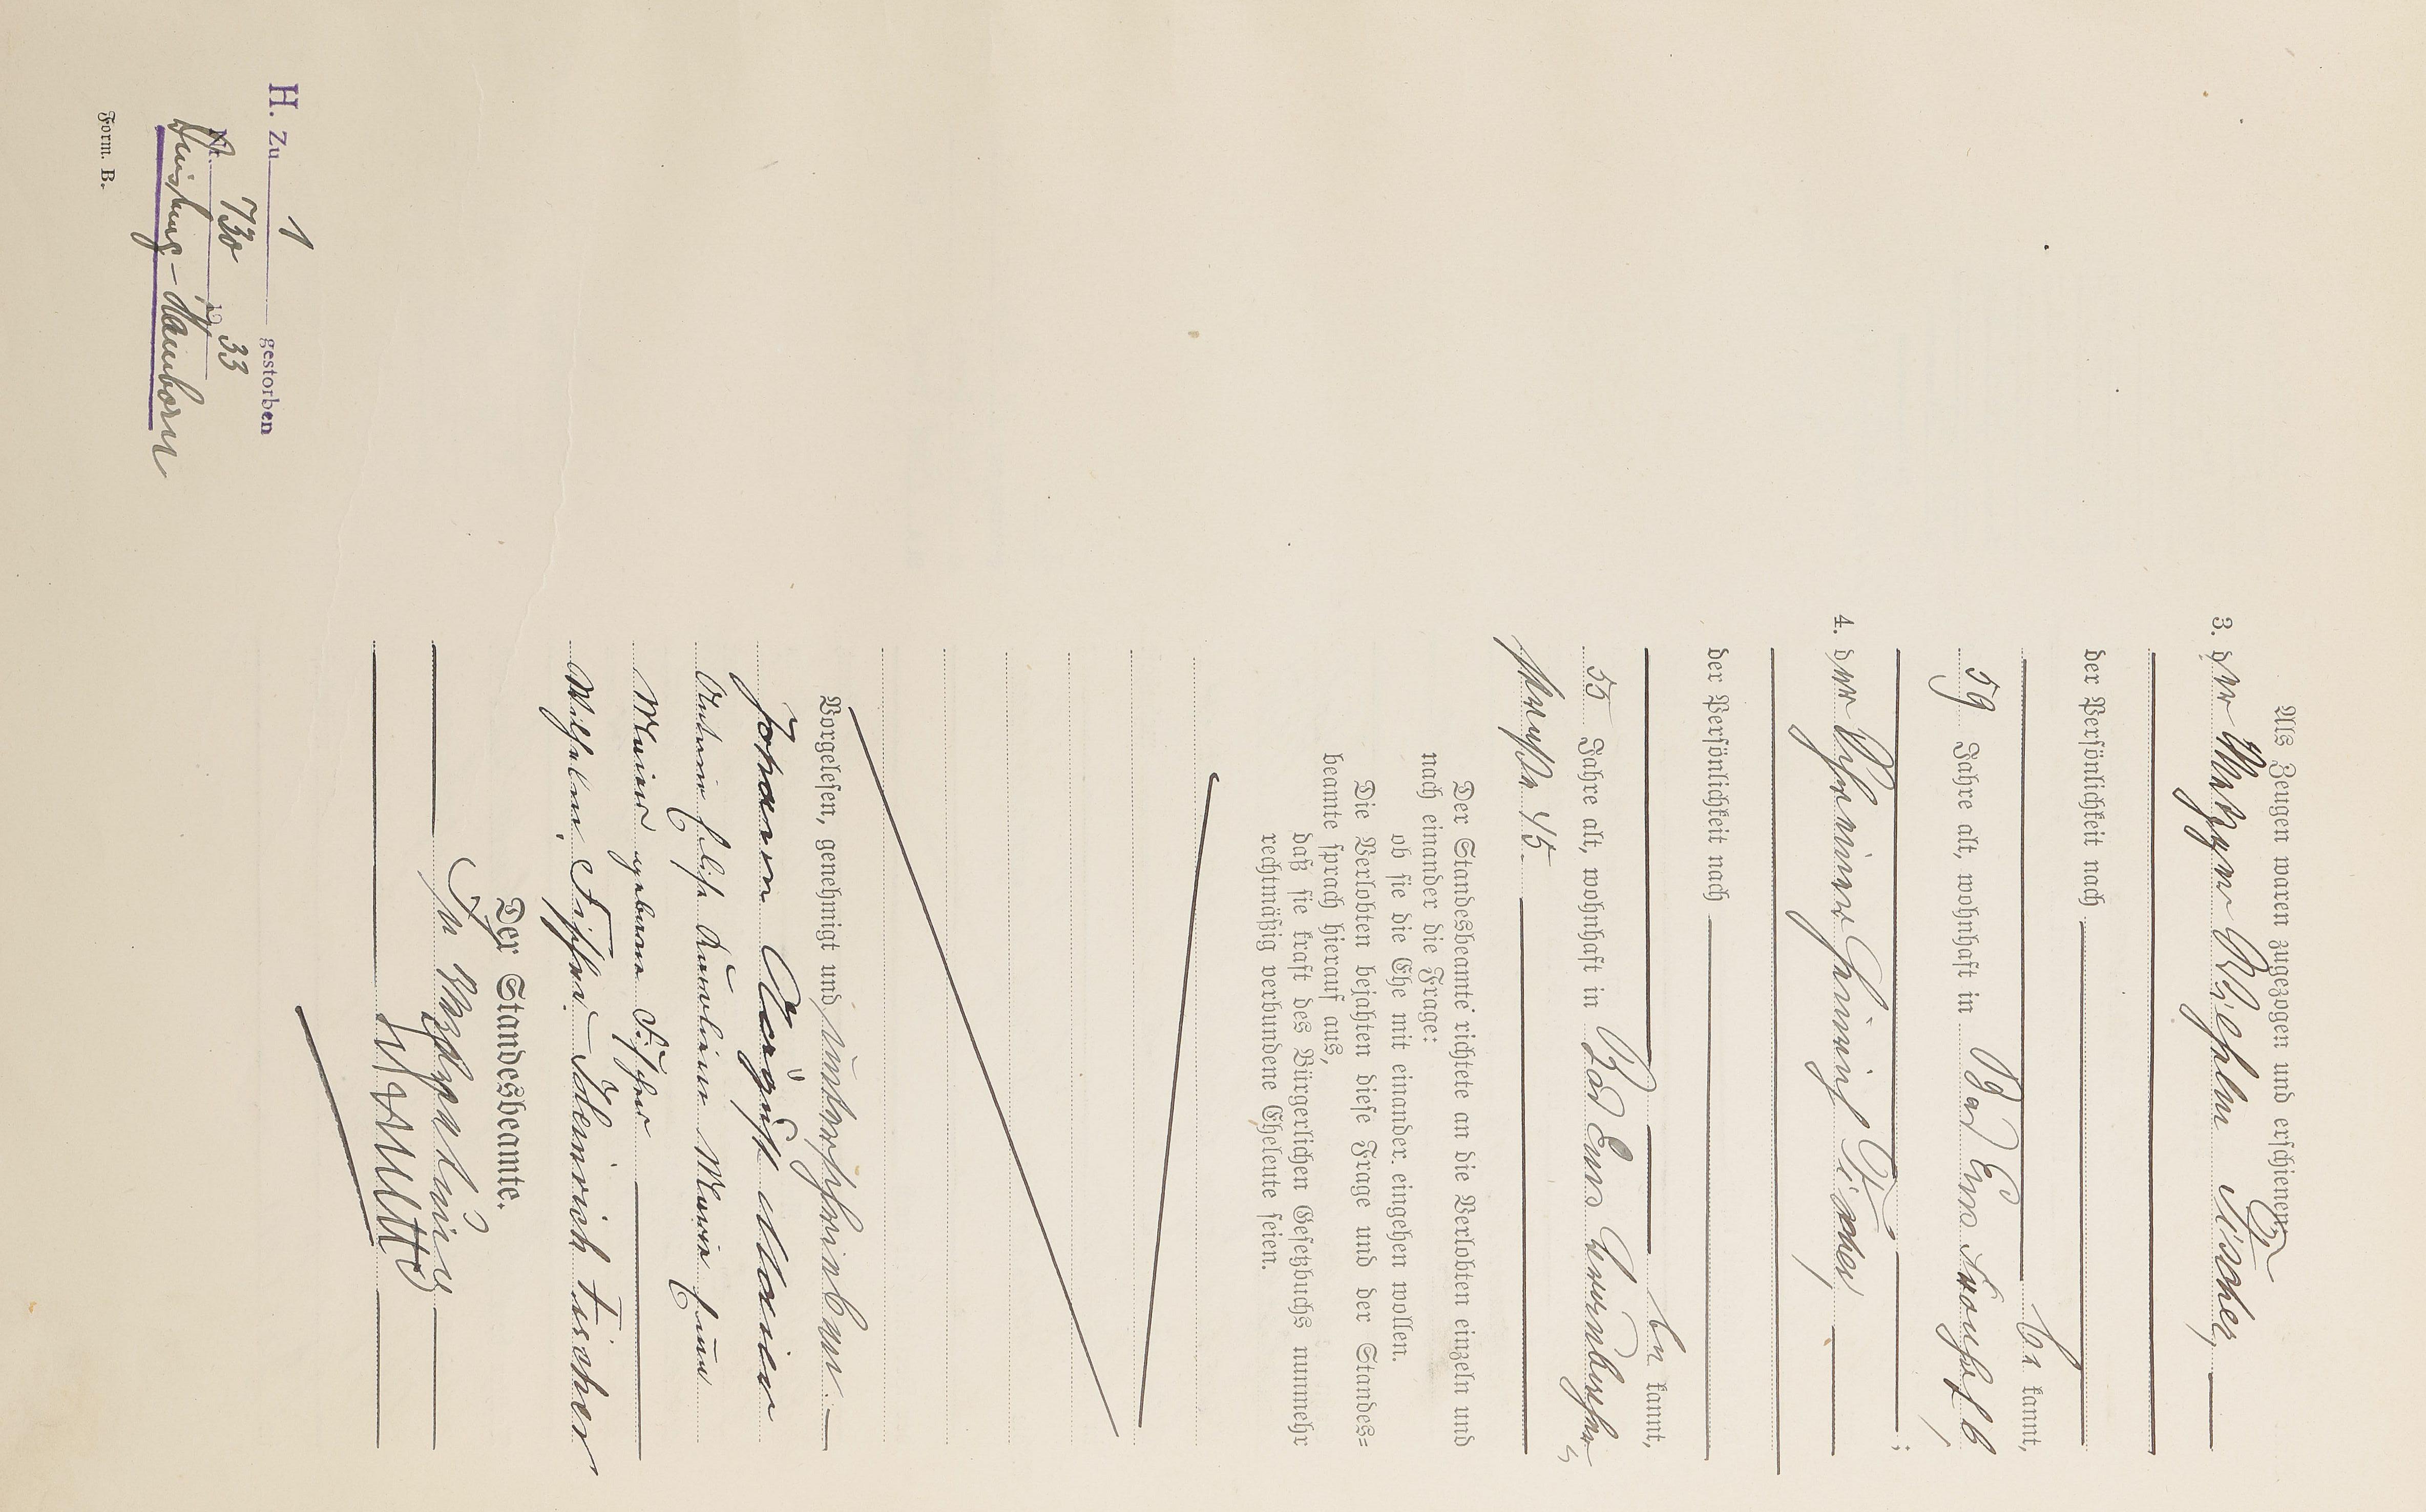 Als Zeugen waren zugezogen und erschienen:
3. der Metzger Wilhelm Fischer,
der Persönlichkeit nach
be kannt,
59 Jahre alt, wohnhaft in Bad Ems
4. der Schreiner Heinrich Fischer,
;
der Persönlichkeit nach
be kannt,
55 Jahre alt, wohnhaft in Bad Ems
straße 45.
Der Standesbeamte richtete an die Verlobten einzeln und
nach einander die Frage:
ob sie die Ehe mit einander eingehen wollen.
Die Verlobten bejahten diese Frage und der Standes=
beamte sprach hierauf aus,
daß sie kraft des Bürgerlichen Gesetzbuchs nunmehr
rechtmäßig verbundene Eheleute seien.
Vorgelesen, genehmigt und unterschrieben.
Johann August Maier
Karoline Marie
Maier geborene Fischer
Wilhelm Fischer. Heinrich Fischer
Der Standesbeamte.
In Vertretung
H. Zu 1 gestorben
Nr. 730 19 33
Duisburg-Hamborn
Form. B.